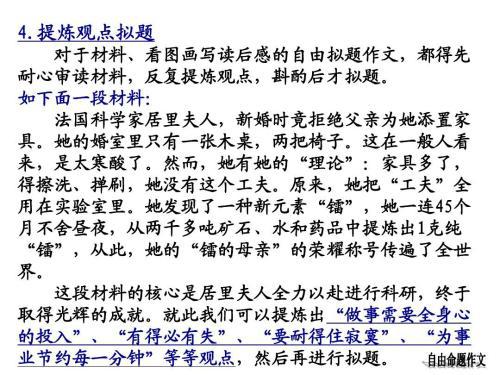 4.提炼观点拟题
对于材料、看图画写读后感的自由拟题作文，都得先
耐心审读材料，反复提炼观点，斟酌后才拟题。
如下面一段材料：
法国科学家居里夫人，新婚时竟拒绝父亲为她添置家
具。她的婚室里只有一张木桌，两把椅子。这在一般人看
来，是太寒酸了。然而，她有她的“理论”：家具多了，
得擦洗、掸刷，她没有这个工夫。原来，她把“工夫”全
用在实验室里。她发现了一种新元素“镭”，她一连45个
月不舍昼夜，从两千多吨矿石、水和药品中提炼出1克纯
“镭”，从此，她的“镭的母亲”的荣耀称号传遍了全世
界。
这段材料的核心是居里夫人全力以赴进行科研，终于
取得光辉的成就。就此我们可以提炼出“做事需要全身心
的投入”、“有得必有失”、“要耐得住寂寞”、“为事
业节约每一分钟”等等观点，然后再进行拟题。
自由命题作文